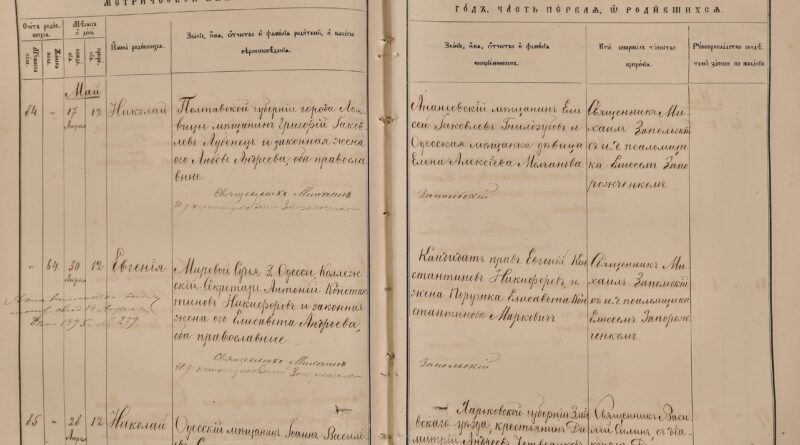 годъ, часть первая, ѡ родившихся.
Счетъ родив-
шихся.
Мѣсяцъ
и день
Имена родившихся.
Званіе, имя, отчество и фамилія родителей, и какого
вѣроисповѣданія.
Званіе, имя, отчество и фамилія
воспріемниковъ.
Кто совершалъ таинство
крещенія.
Май
84 " 17 12 Николай
Апрѣля
Полтавской губерніи города Лох-
вицы мѣщанинъ Григорій Яков-
левъ Лубенецъ и законная жена
его Любовь Андреева, оба православ-
ные.
Священникъ Михаилъ
Ананьевскій мѣщанинъ Ели-
сей Яковлевъ Гнилозубъ и
Одесская мѣщанка дѣвица
Елена Алексѣева Молчанова
Запольскій
Священникъ Ми-
хаилъ Запольскій
съ и. д. псаломщи-
ка Елисеемъ Запо-
рожченкомъ.
" 64 30 12 Евгенія
Апрѣля
Мировой Судья г. Одессы, Коллеж-
скій Секретарь Антоній Констан-
тиновъ Никифоровъ и законная
жена его Елисавета Андреева,
оба православные
Священникъ Михаилъ
1895 г. № 259
Кандидатъ правъ Евгеній Кон-
стантиновъ Никифоровъ и
жена Поручика Елисавета Кон-
стантинова Марковичъ
Запольскій
Священникъ Ми-
хаилъ Запольскій
съ и. д. псаломщика
Елисеемъ Запорож-
ченкомъ.
85 " 28 12 Николай
Апрѣля
Одесскій мѣщанинъ Іоаннъ Васил-
Харьковской губерніи Змі-
евскаго уѣзда, крестьянинъ Ди-
митрій Андреевъ
Священникъ Васи-
лій